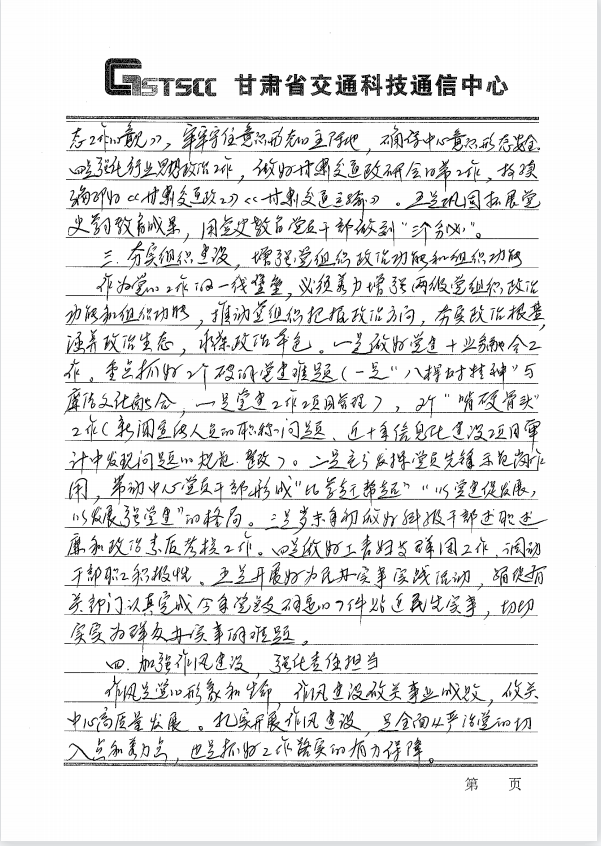 GSTSCC 甘肃省交通科技通信中心
态工作的意见》，牢牢守住意识形态的主阵地，确保中心意识形态安全。
四是强化行业思想政治工作，做好甘肃交通政研会日常工作。按项
编印好《甘肃交通政工》《甘肃交通之声》。五是巩固拓展党
史学习教育成果，用党史教育党员干部做到“三个务必”。
三、夯实组织建设，增强党组织政治功能和组织功能
作为党的工作的一线堡垒，必须着力增强两级党组织政治
功能和组织功能，推动党组织把握政治方向，夯实政治根基，
涵养政治生态，永葆政治本色。一是做好党建+业务融合工
作。重点抓好2个破解党建难题（一是“八棵树精神”与
廉洁文化融合，一是党建工作项目管理），2个“啃硬骨头”
工作（新调宣传人员的职称问题、近十年信息化建设项目审
计中发现问题的规范整改）。二是充分发挥党员先锋示范岗作
用，带动中心党员干部形成“比学赶帮超”“以党建促发展，
以发展强党建”的格局。三是岁末年初做好科级干部述职述
廉和政治素质考核工作。四是做好工青妇等群团工作，调动
干部职工积极性。五是开展好为民办实事实践活动，督促有
关部门认真完成今年党总支确定的7件贴近民生实事，切切
实实为群众办实事解难题。
四、加强作风建设，强化责任担当
作风是党的形象和生命，作风建设攸关事业成败，攸关
中心高质量发展。扎实开展作风建设，是全面从严治党的切
入点和着力点，也是抓好工作落实的有力保障。
第 页